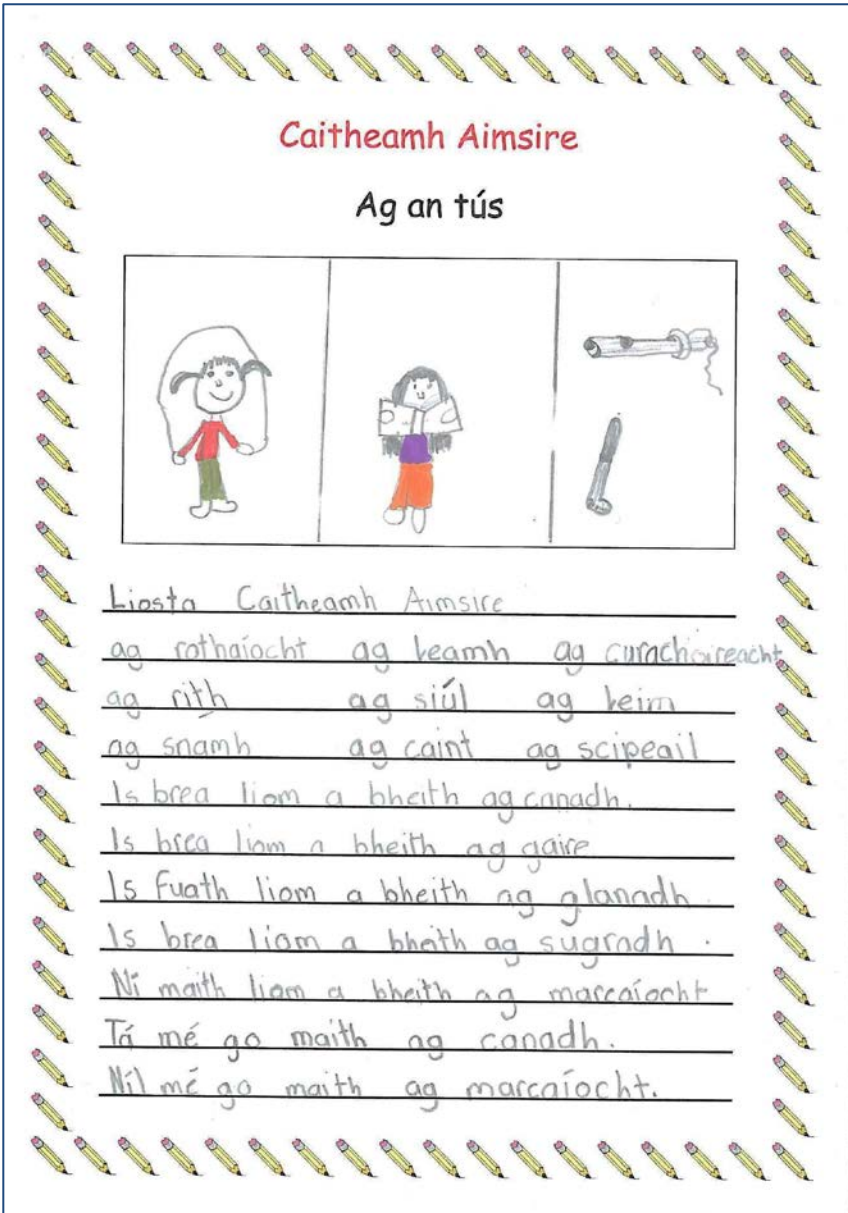 Caitheamh Aimsire
Ag an tús
Liosta Caitheamh Aimsire
ag rothaíocht ag leamh ag curachoireacht
ag rith ag siúl ag leim
ag snamh ag caint ag scipeail
Is brea liom a bheith ag canadh.
Is brea liom a bheith ag gaire
Is fuath liom a bheith ag glanadh.
Is brea liom a bheith ag sugradh.
Ní maith liom a bheith ag marcaíocht
Tá mé go maith ag canadh.
Níl mé go maith ag marcaíocht.